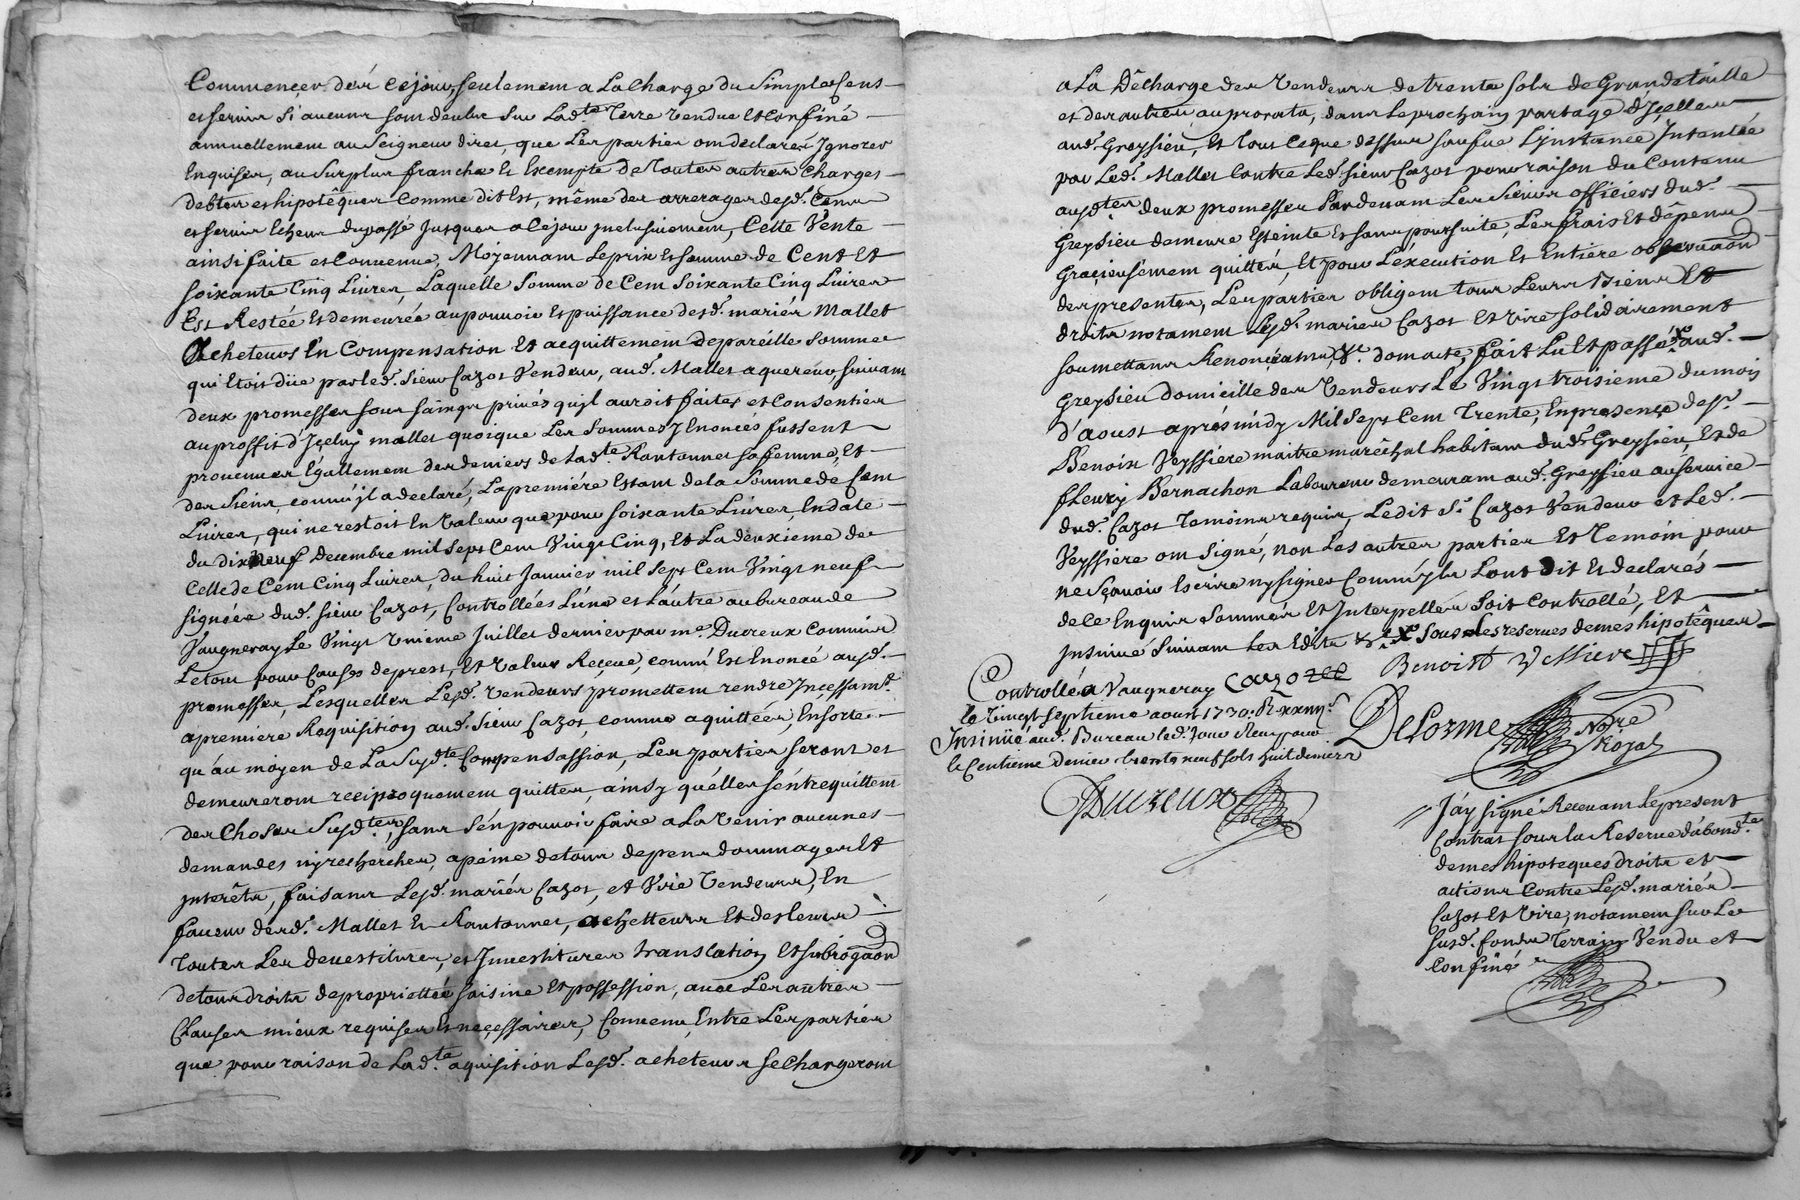 Commencer dés cejour, seulement a La charge du simple Cens
et servis si aucuns sont deubs sur Lad.te Terre Vendue et confiné
annuellement au Seigneur direc, que Les parties ont declarés Ignorer
Enquises, au surplus franche Et Exempte de Toutes autres Charges
debtes et hipotêques Comme dit Est, même des arrerages desd. Cens
et servis Echeus dupassé Jusques a Cejour inclusivement, Cette Vente
ainsi faite et Convenue, Moyennant Le prix Et somme de Cent Et
soixante Cinq Livres, Laquelle Somme de Cent Soixante Cinq Livres
Est Restée Et demeurée au pouvoir Et puissance desd. mariés Mallet
Acheteurs En Compensation Et acquittement de pareille Somme
qui Etoit düe par led. Sieur Cazot Vendeur, aud. Mallet aquereur suivant
deux promesses sous saings privés quil auroit faites et Consenties
au proffit d'Içeluy mallet quoique Les Sommes y Enoncés fussent
provenues Egallement des deniers de Lad.te Rantonnet sa femme, Et
des Siens, comm'jl a declaré, La premiére Estant de la Somme de Cent
Livres, qui ne restoit En Valeur que pour soixante Livres, En date
du dix neuf decembre mil sept Cent Vingt Cinq, Et La deuxieme de
Celle de Cent Cinq Livres, du huit Janvier mil sept Cent Vingt neuf
signées dud. sieur Cazot, Controllées L'une et L'autre au bureau de
Vaugneray Le Vingt Unieme Juillet dernier par me. Ducreux Commis
Le tout pour Causes de prest, Et Valeur Reçeue, comm' Est Enoncé ausd.
promesses, Lesquelles Lesd. Vendeurs promettent rendre Inçessamt.
a premiere Requisition aud. Sieur Cazot, comme aquittées, En sorte
qu'au moyen de La susd.te Compensassion, Les parties seront et
demeureront reciproquement quittes, ainsy qu'elles s'entrequittent
des Choses susd.tes, sans s'en pouvoir faire a La Venir aucunes
demandes ny recherches, apéine de tous depens dommages Et
interêts, faisant Lesd. mariés Cazot, et Viré Vendeurs, En
faveur desd. Mallet Et Rantonnet, achetteurs Et des leurs
Toutes Les devestitures, et Investitures translation Et subrogaon
de tous droits de proprieté saisine Et possession, avec Les autres
Clauses mieux requises Et neçessaires, Convenu, Entre Les parties
que pour raison de Lad.te aquisition Lesd. acheteurs se Chargeront
a La Décharge des Vendeurs de trente sols de Grande taille
et des autres au prorata, dans Le prochain partage d'Içelles
aud. Greysieu, Et Tout Ceque dessus L'instance Intentée
par Led. Mallet Contre Led. Sieur Cazot pour raison du Contenu
ausd.tes deux promesses Pardevant Les Sieurs officiers dud.
Greysieu demeure Esteinte Et sans poursuite, Les frais Et dépens
Graçieusément quittés, Et pour L'execution Et Entiere observaon
des presentes, Les parties obligent tous Leurs Biens Et
droits notament Lesd. mariés Cazot Et Viré solidairement
soumettans Renonçeans, &c. dont acte, fait Lu Et passé aud.
Greysieu domicille des Vendeurs Le Vingt troisieme du mois
d'aoust aprés midy Mil Sept Cent Trente, En presençe de sr.
Benoit Veyssiere maitre maréchal habitant dud. Greysieu, Et de
fleury Bernachon Laboureur demeurant aud. Greysieu au service
dud. Cazot Temoins requis, Ledit Sr. Cazot Vendeur et Led.
Veyssiere ont signé, non Les autres parties Et Temoin pour
ne sçavoir Escrire ny signer Comm'yls L'ont Dit Et declarés
de ce Enquis Sommés Et Interpellés Soit Controllé, Et
insinué Suivant Les Edits &c. X Sous les reserves de mes hipotêques
Cazot Benoist Vessiere
Controllé a Vaugneray
le Vingt septieme aoust 1730.
Insinüé aud. Bureau led. Jour Reçu pour
le Centieme denier trente neuf sols huit deniers
Ducreux
Delorme Nore
Royal
J'ay signé Recevant Le present
Contrat sous La Reserve d'abond.te
de mes hipoteques droits et
actions Contre Lesd. mariés
Cazot Et Viré, notament sur Le
susd. fonds Terrain Vendu et
Confiné